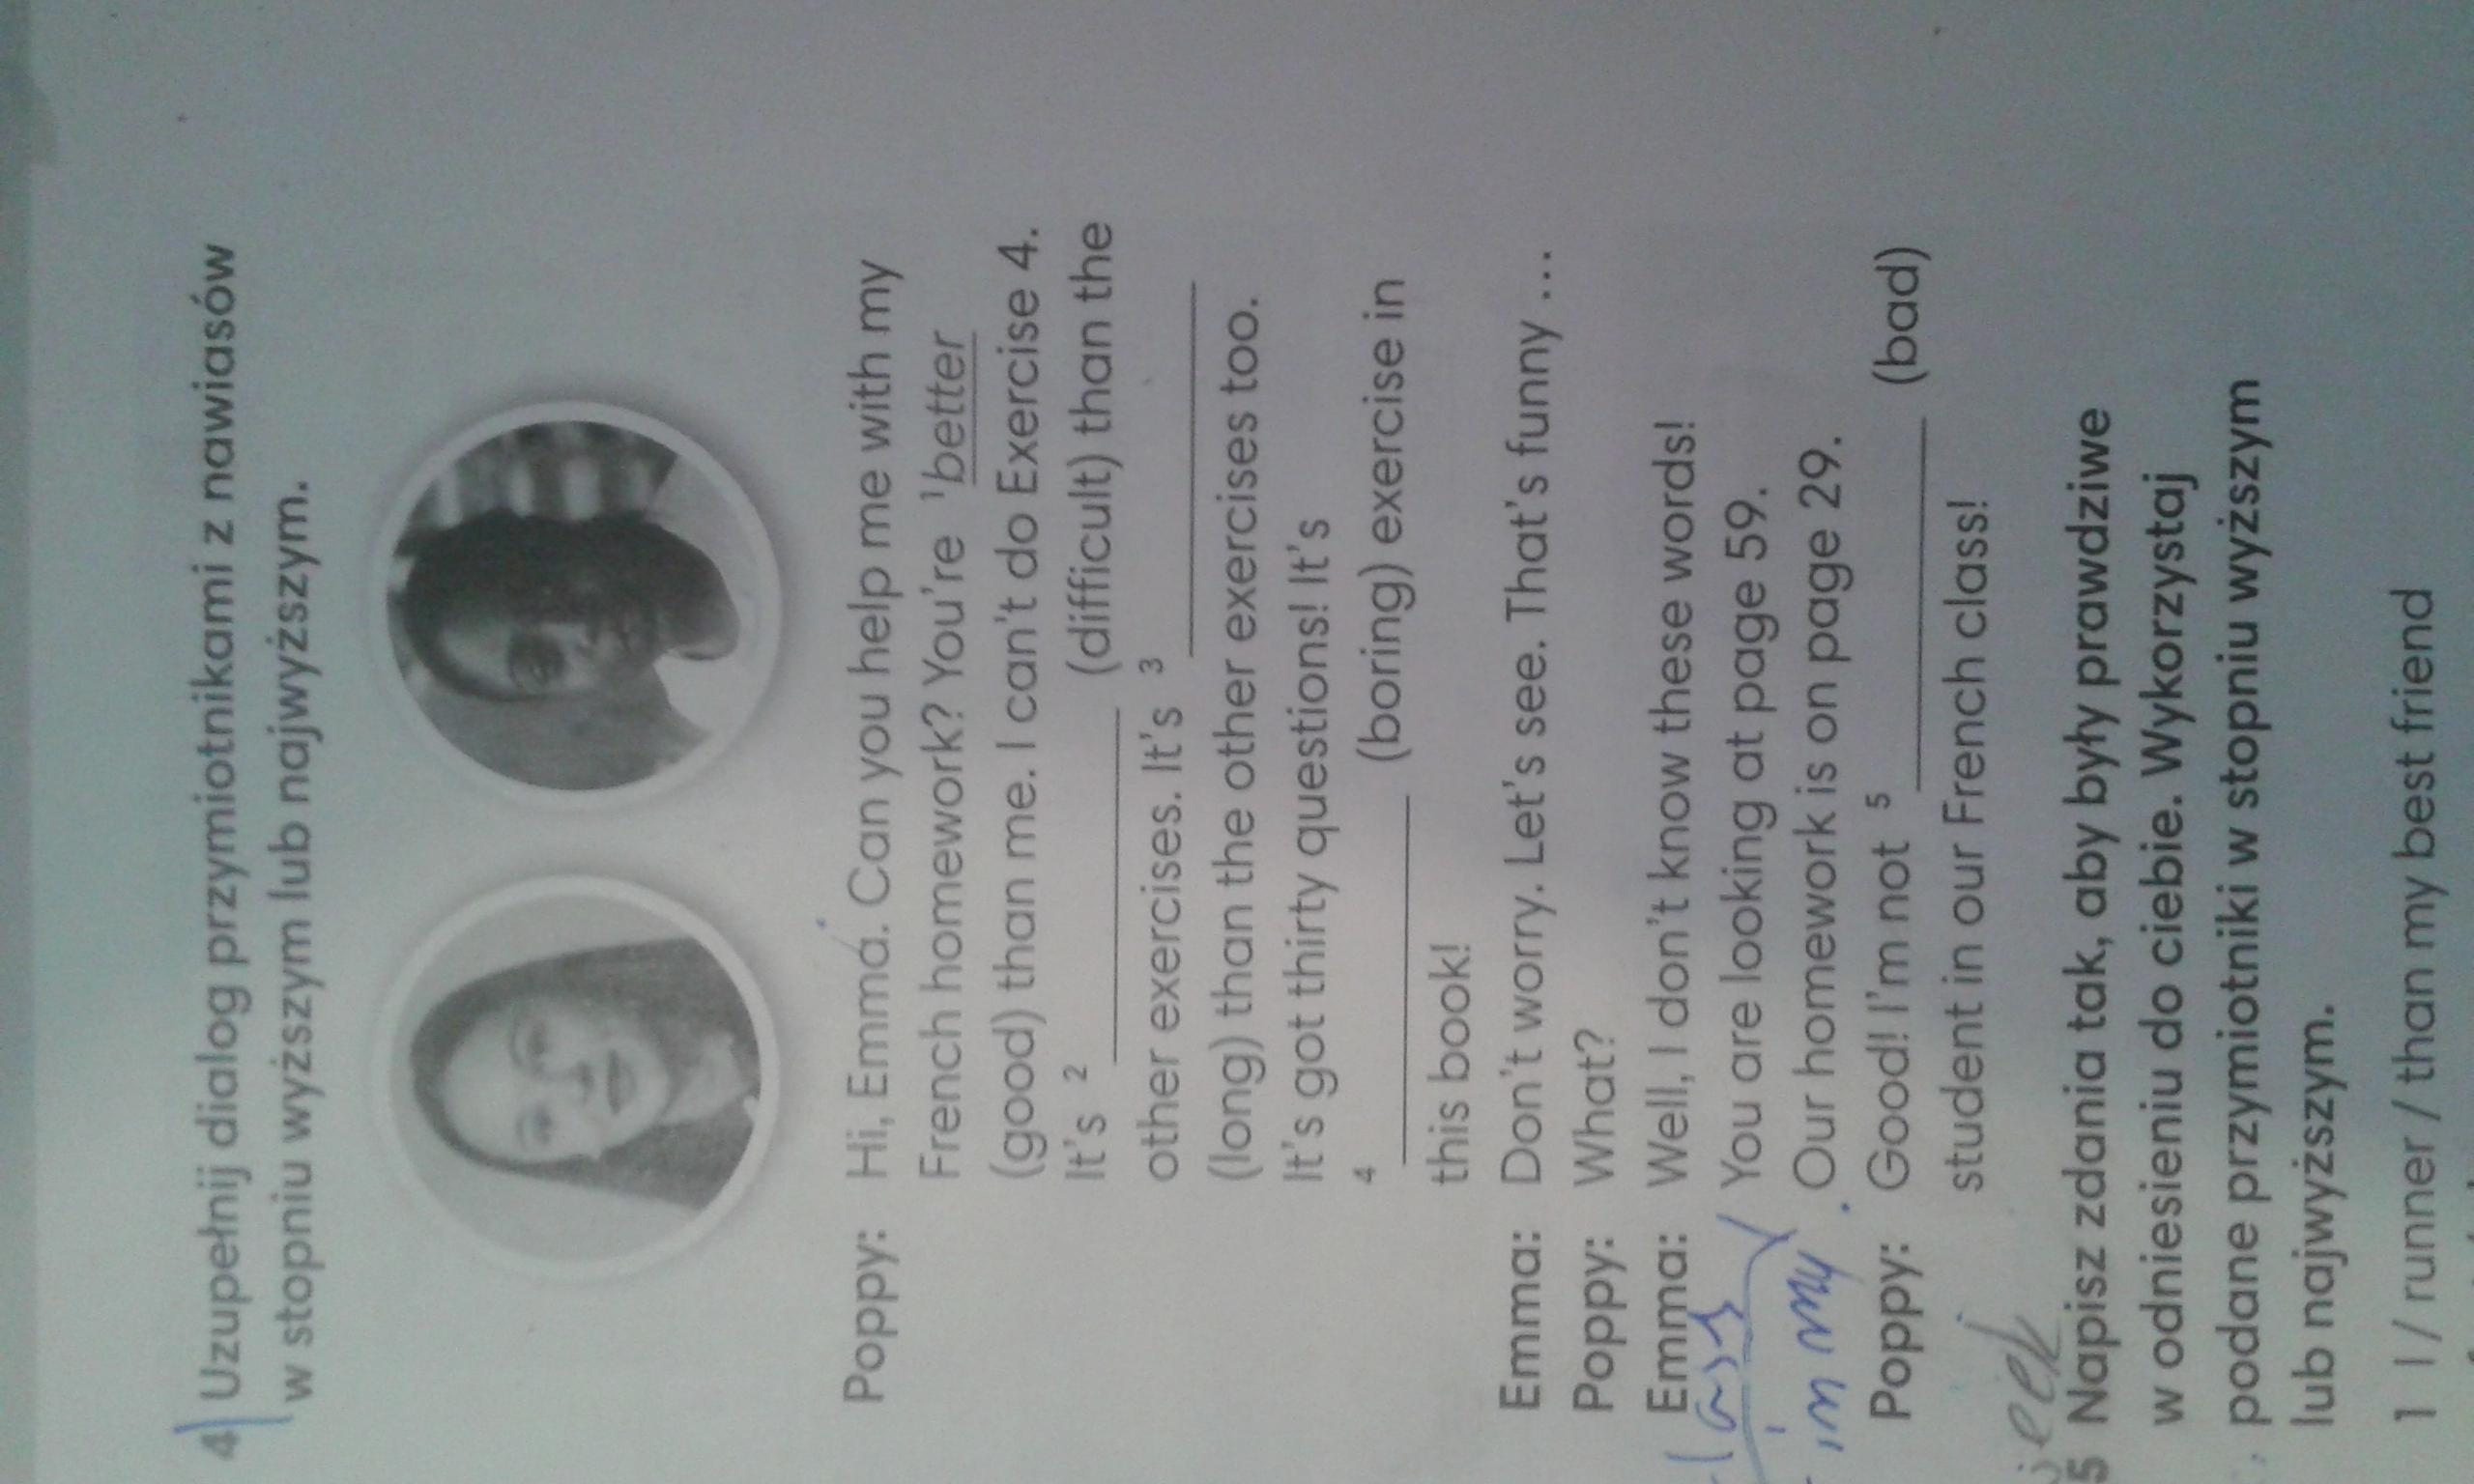 4 Uzupełnij dialog przymiotnikami z nawiasów
w stopniu wyższym lub najwyższym.
Poppy: Hi, Emma. Can you help me with my
French homework? You're ¹better
(good) than me. I can't do Exercise 4.
It's ² __________ (difficult) than the
other exercises. It's ³ __________
(long) than the other exercises too.
It's got thirty questions! It's
⁴ __________ (boring) exercise in
this book!
Emma: Don't worry. Let's see. That's funny ...
Poppy: What?
Emma: Well, I don't know these words!
You are looking at page 59.
Our homework is on page 29.
Poppy: Good! I'm not ⁵ __________ (bad)
student in our French class!
in my
5 Napisz zdania tak, aby były prawdziwe
w odniesieniu do ciebie. Wykorzystaj
podane przymiotniki w stopniu wyższym
lub najwyższym.
1 I / runner / than my best friend